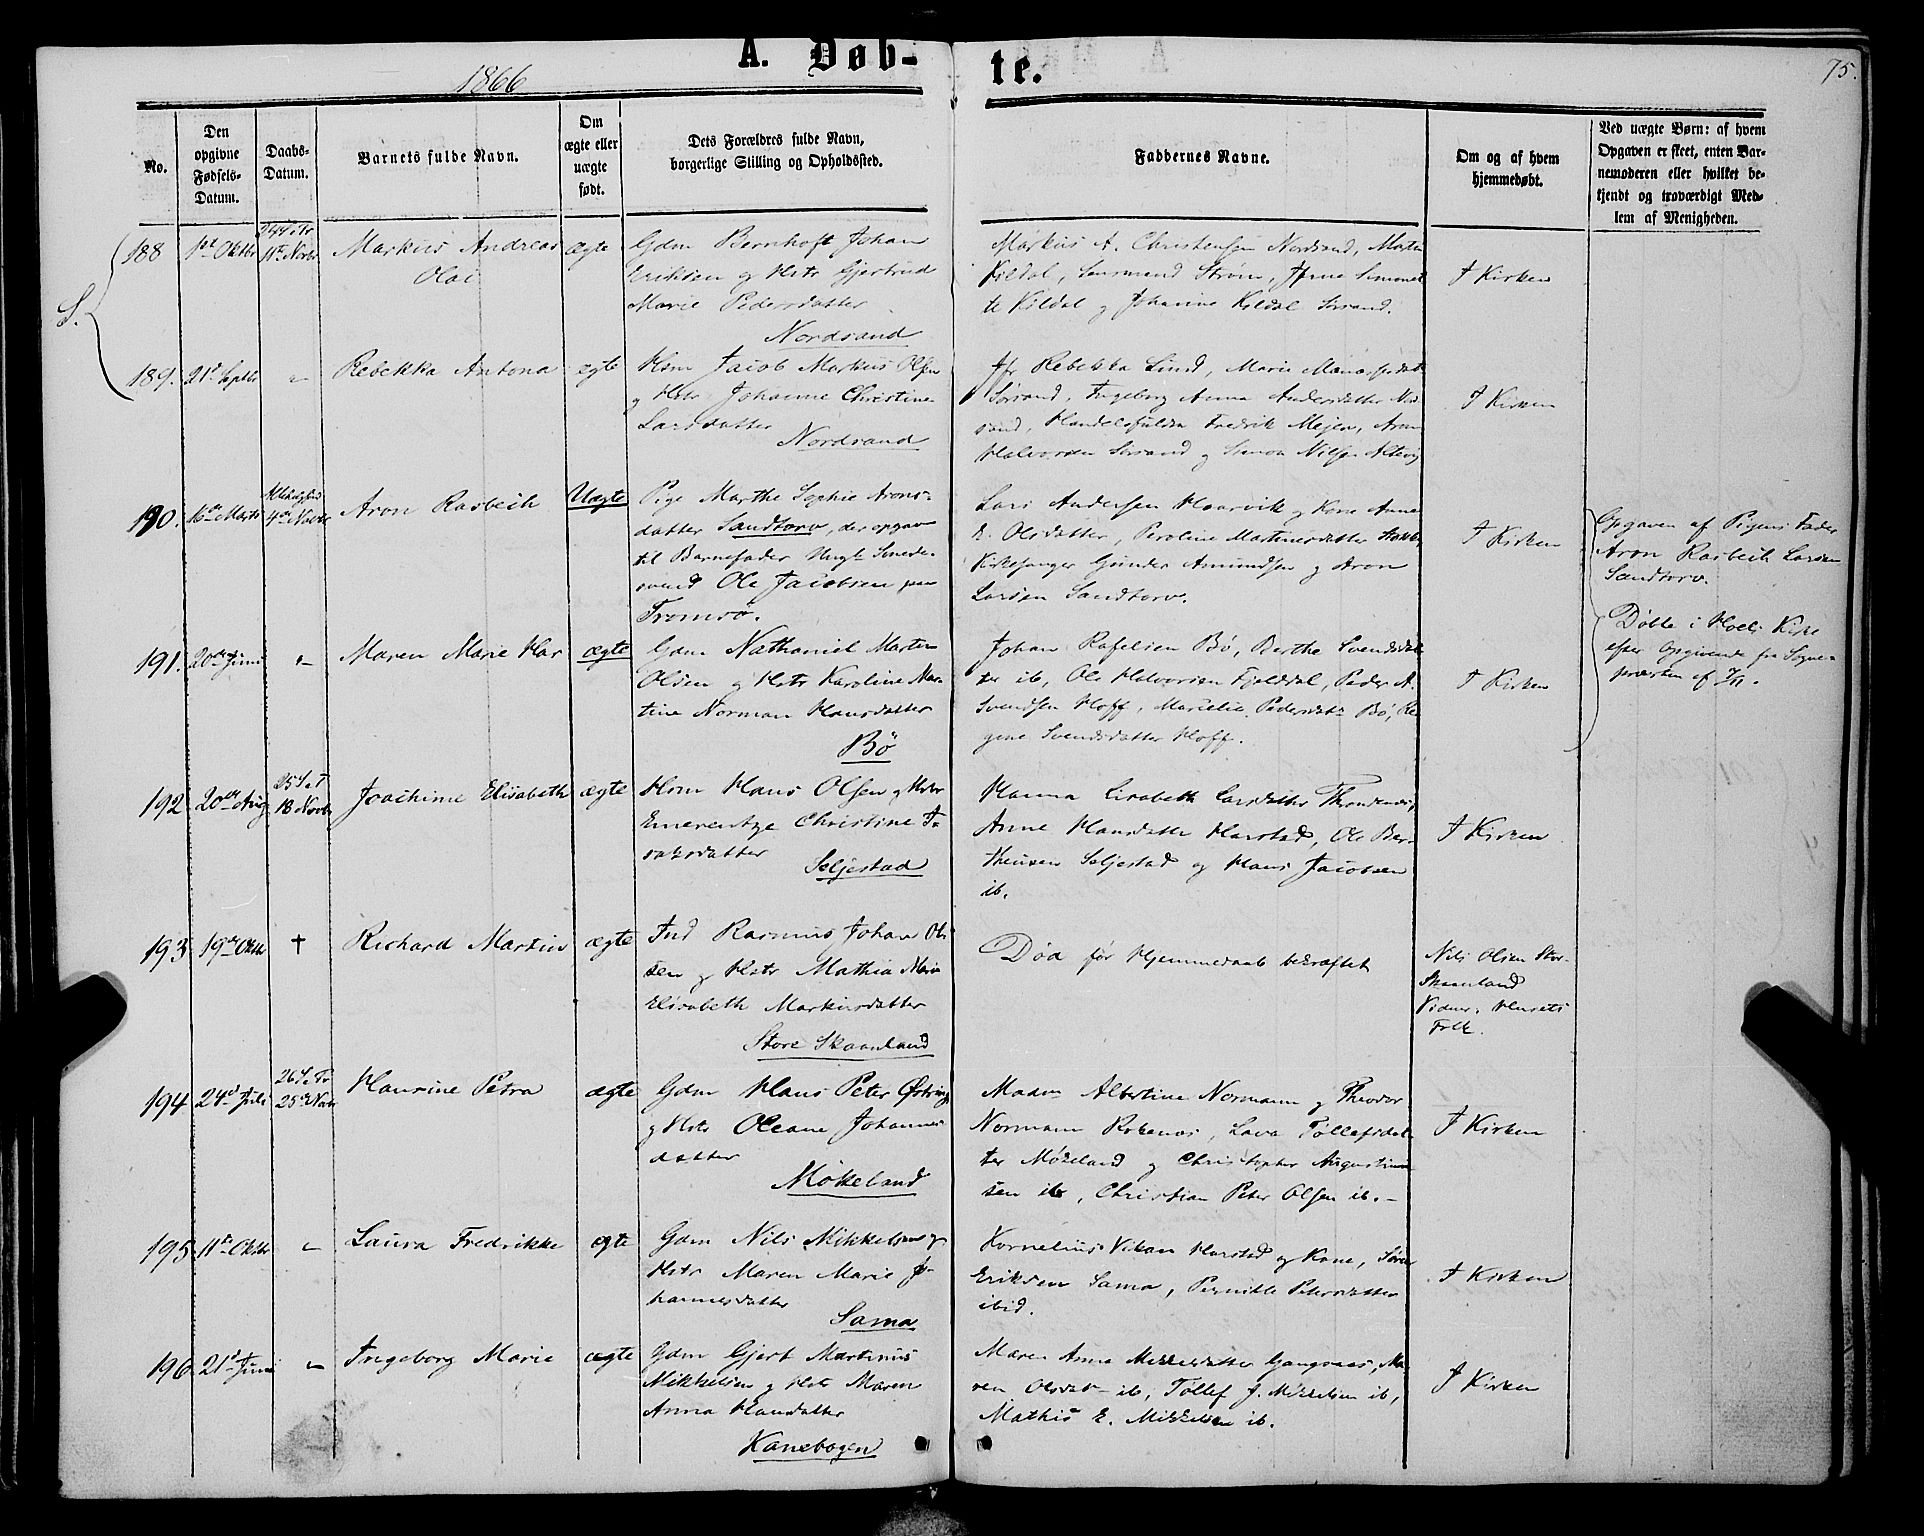 1866
A. Døb-
te.
75.
No.
Den
opgivne
Fødsels-
Datum.
Daabs-
Datum.
Barnets fulde Navn.
Om
ægte eller
uægte
født.
Dets Forældres fulde Navn,
borgerlige Stilling og Opholdssted.
Faddernes Navne.
Om og af hvem
hjemmedøbt.
Ved uægte Børn: af hvem
Opgaven er skeet, enten Bar-
nemoderen eller hvilket be-
kjendt og troværdigt Med-
lem af Menigheden.
S.
188
1ste Oktbr
11te Novbr
Markus Andreas
Olai
ægte
Gdm Bernhoft Johan
Eriksen og Hstr Gjertrud
Marie Pedersdatter
Nordsand
Markus A. Christensen Nordsand, Martin
Kildal, Strøm, Simonet
te Kildal og Johanine Kildal Sørsand.
I Kirken
189.
21de Septbr
"
Rebekka Antona
ægte
Hsm Jacob Markus Olsen
og Hstr Johanne Christine
Larsdatter
Nordsand
Jfr Rebekka Lind, Marie
Sørsand, Ingeborg Anna Andersdatter Nord
sand, Fredrik Mejer, Aron
Halvorsen Sørsand og Simon Nilsen
I Kirken
190.
16de Marts
4de Novbr
Aron Rasbech
Uægte
Pige Marthe Sophie Arons-
datter Sandtorv, der opgav
til Barnefader Ungk Smede-
svend Ole Jacobsen paa
Tromsø.
Lars Andersen Haarvik og Kone Anne
E. Olsdatter, Peroline Martinusdatter
Kirkesanger Gunder Amundsen og Aron
Larsen Sandtorv.
I Kirken
Opgaven af Pigens Fader
Aron Rasbech Larsen
Sandtorv.
191.
20de Juni
"
Maren Marie Har
ægte
Gdm Nathaniel Marten
Olsen og Hstr Karoline Mar-
tine Norman Hansdatter
Bø
Johan Rafelsen Bø, Berthe Svendsdat
ter ib, Ole Halvorsen Fjelddal, Peder A.
Svendsen Hoff, Pedersdatr Bø, Re
gine Svendsdatter Hoff.
I Kirken
Døbte i Hols Kirke
efter Opgivende fra Sogne-
præsten af
192
20de Aug
25 S e T
18 Novbr
Joachime Elisabeth
ægte
Hsm Hans Olsen og Hstr
Emerentze Christine I-
saksdatter
Seljestad
Hanna Lisabeth Larsdatter Throndenæs,
Anne Hansdattr Harstad, Ole Ber-
theusen Seljestad og Hans Jacobsen
ib.
I Kirken
193
19de Oktb
†
Richard Martin
ægte
Ind Rasmus Johan Ol-
sen og Hstr Mathia Marie
Elisabeth Markusdatter
Store Skaanland
Død før Hjemmedaab bekræftet
Nils Olsen Stor-
Skaanland
Vidner. Husets
Folk.
194
24de Juli
26 S e Tr
25de Novbr
Haurine Petra
ægte
Gdm Hans Peter Østring
og Hstr Oleane Johannes
datter
Møkeland
Madm Albertine Normann og Theodor
Normann Rokenæs, Lava Tøllefsdat-
ter Møkeland og Christopher Augustinus-
sen ib, Christian Peter Olsen ib. –
I Kirken
195
11te Oktbr
"
Laura Fredrikke
ægte
Gdm Nils Mikkelsen og
Hstr Maren Marie Jo-
hannesdatter
Sama
Kornelius Vikan Harstad og Kone, Søren
Eriksen Sama, Pernille Petersdatter
ibid.
I Kirken
196
21de Juni
"
Ingeborg Marie
ægte
Gdm Gjert Martinus
Mikkelsen og Hstr Maren
Anna Hansdatter
Kanebogen
Maren Anna Mikkelsdatter Gangsaas, Ma-
ren Olsdatr ib, Tøllef J. Mikkelsen ib,
Mathis E. Mikkelsen ib.
I Kirken